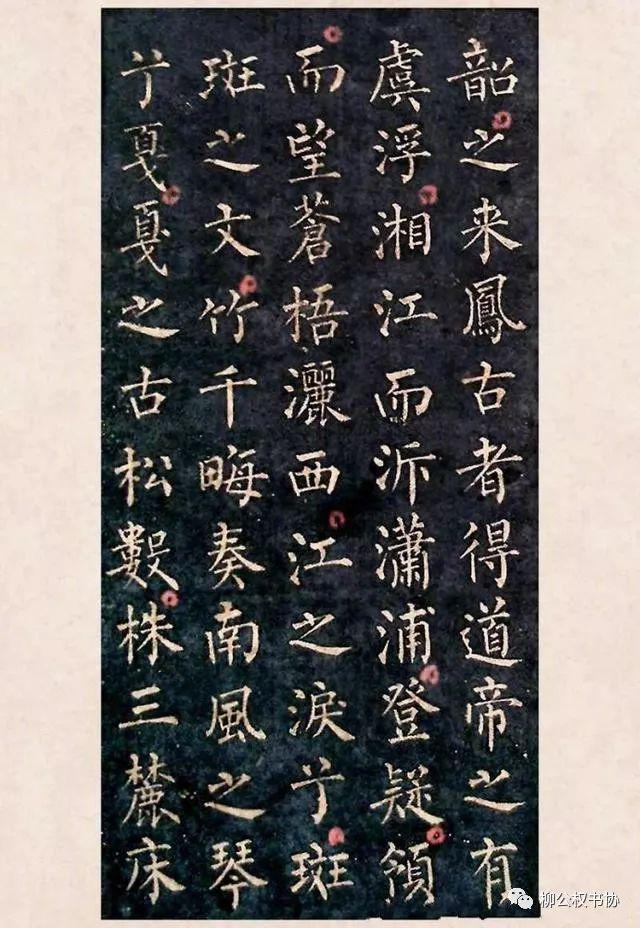 韶之来鳳古者得道帝之有
虞浮湘江而泝瀟浦登疑領
而望蒼梧灑西江之淚兮斑
斑之文竹千畮奏南風之琴
兮戛戛之古松數株三麓床
柳公权书协